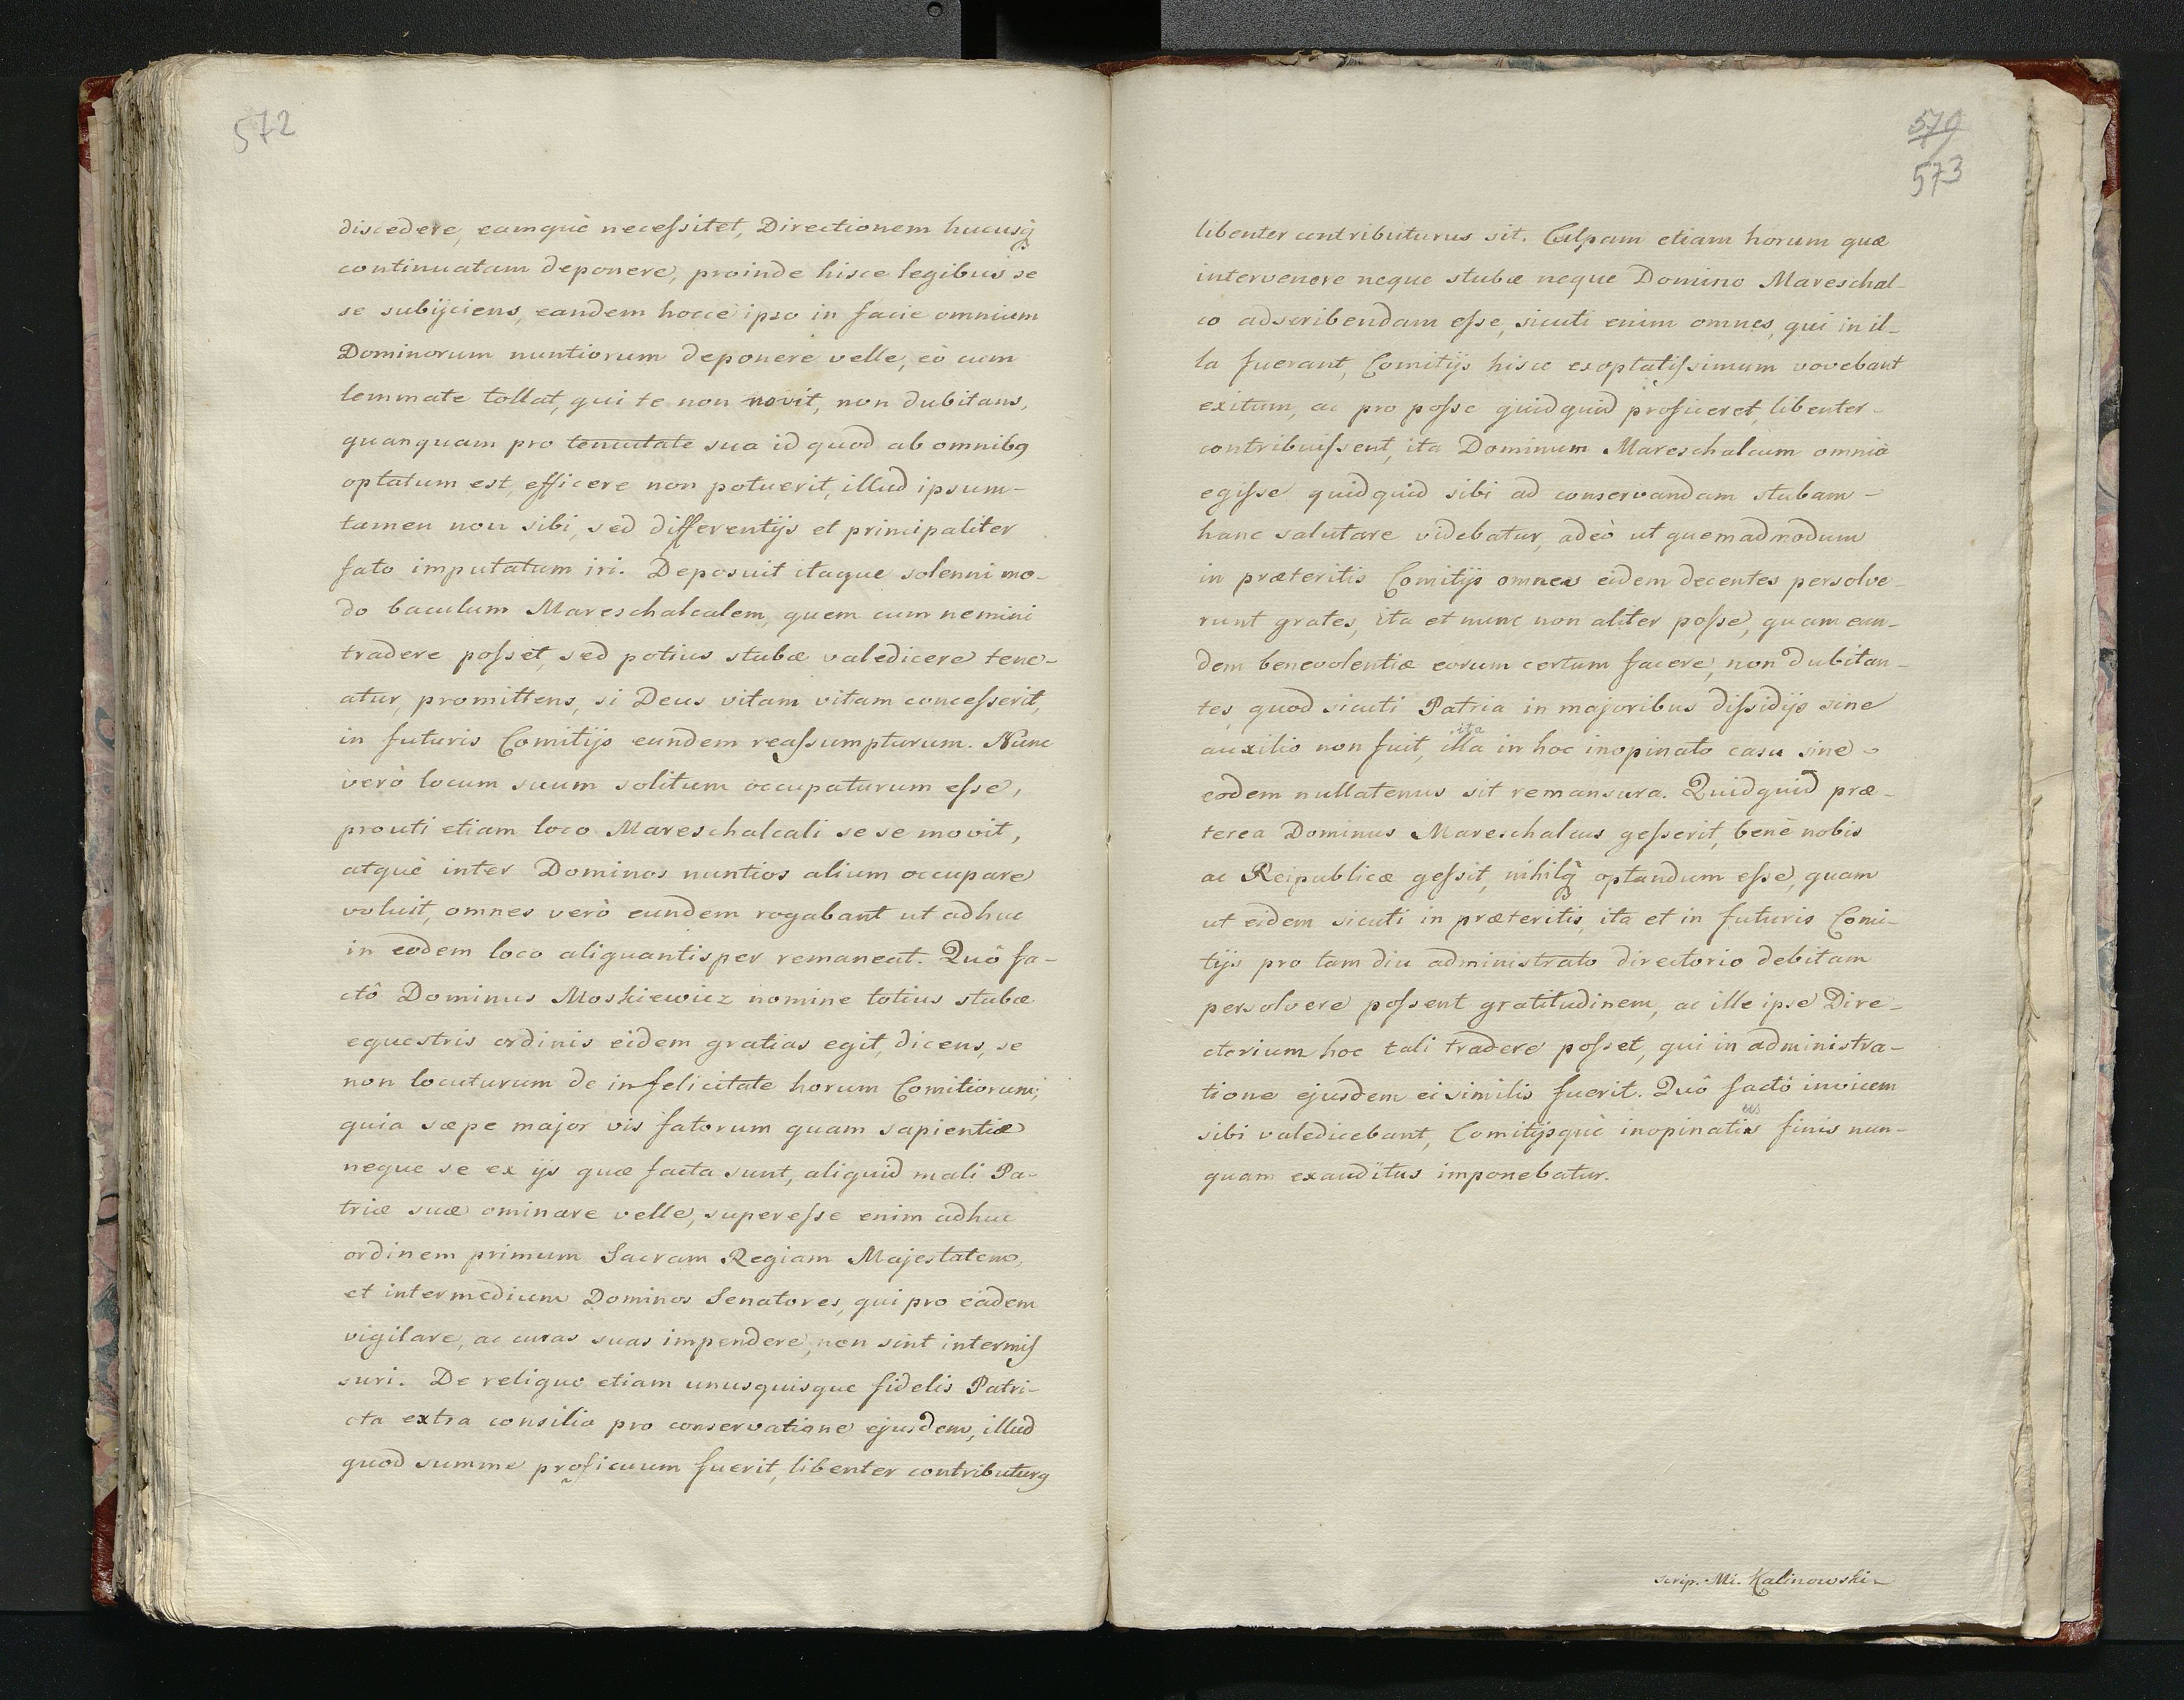 572
discedere, eamquè necefsitet, Directionem hucusq
continuatam deponere, proinde hisce legibus se
se subijciens, eandem hocce ipso in facie omnium
Dominorum nuntiorum deponere velle, eò cum
lemmate tollat, qui te non novit, non dubitans,
quanquam pro tenuitate sua id quod ab omnibq
optatum est, efficere non potuerit, illud ipsum-
tamen non sibi, sed differentijs et principaliter
fato imputatum iri. Deposuit itaque solenni mo-
do baculum Mareschalcalem, quem cum nemini
tradere pofset, sed potius stubæ valedicere tene-
atur, promittens, si Deus vitam vitam concefserit,
in futuris Comitijs eundem reafsumpturum. Nunc
verò locum suum solitum occupaturum efse,
prouti etiam loco Mareschalcali se se movit,
atquè inter Dominos nuntios alium occupare
voluit, omnes verò eundem rogabant ut adhuc
in eodem loco aliquantisper remaneat. Quô fa-
ctô Dominus Moskiewicz nomine totius stubæ
equestris ordinis eidem gratias egit, dicens, se
non locuturum de infelicitate horum Comitiorum,
quia sæpe major vis fatorum quam sapientiæ
neque se ex ijs quæ facta sunt, aliquid mali Pa-
triæ suæ ominare velle, superefse enim adhuc
ordinem primum Sacram Regiam Majestatem,
et intermedium Dominos Senatores, qui pro eadem
vigilare, ac curas suas impendere, non sint intermif
suri. De reliquo etiam unusquisque fidelis Patri-
ota extra consilia pro conservatione ejusdem, illud
quod summe proficuum fuerit, libenter contributurq
579
573
libenter contributurus sit. Culpam etiam horum quæ
intervenere neque stubæ neque Domino Mareschal-
co adscribendam efse, sicuti enim omnes, qui in il-
la fuerant, Comitijs hisce exoptatifsimum vovebant
exitum, ac pro pofse quidquid proficeret, libenter-
contribuifsent, ita Dominum Mareschalcum omnia
egifse quidquid sibi ad conservandam stubam-
hanc salutare videbatur, adeò ut quemadmodum
in præteritis Comitijs omnes eidem decentes persolve-
runt grates, ita et nunc non aliter pofse, quam eun-
dem benevolentiæ eorum certum facere, non dubitan-
tes, quod sicuti Patria in majoribus difsidijs sine
ita
auxilio non fuit, illa in hoc inopinato casu sine
eodem nullatenus sit remansura. Quidquid præ-
terea Dominus Mareschalcus gefserit, benè nobis
ac Reipublicæ gefsit, nihilq optandum efse, quam
ut eidem sicuti in præteritis, ita et in futuris Comi-
tijs pro tam diu administrato directorio debitam
persolvere pofsent gratitudinem, ac ille ipse Dire-
ctorium hoc tali tradere pofset, qui in administra-
tione ejusdem ei similis fuerit. Quô factô invicem
us
sibi valedicebant, Comitijsquè inopinatis finis nun-
quam exauditus imponebatur.
scrip. Mi. Kalinowski